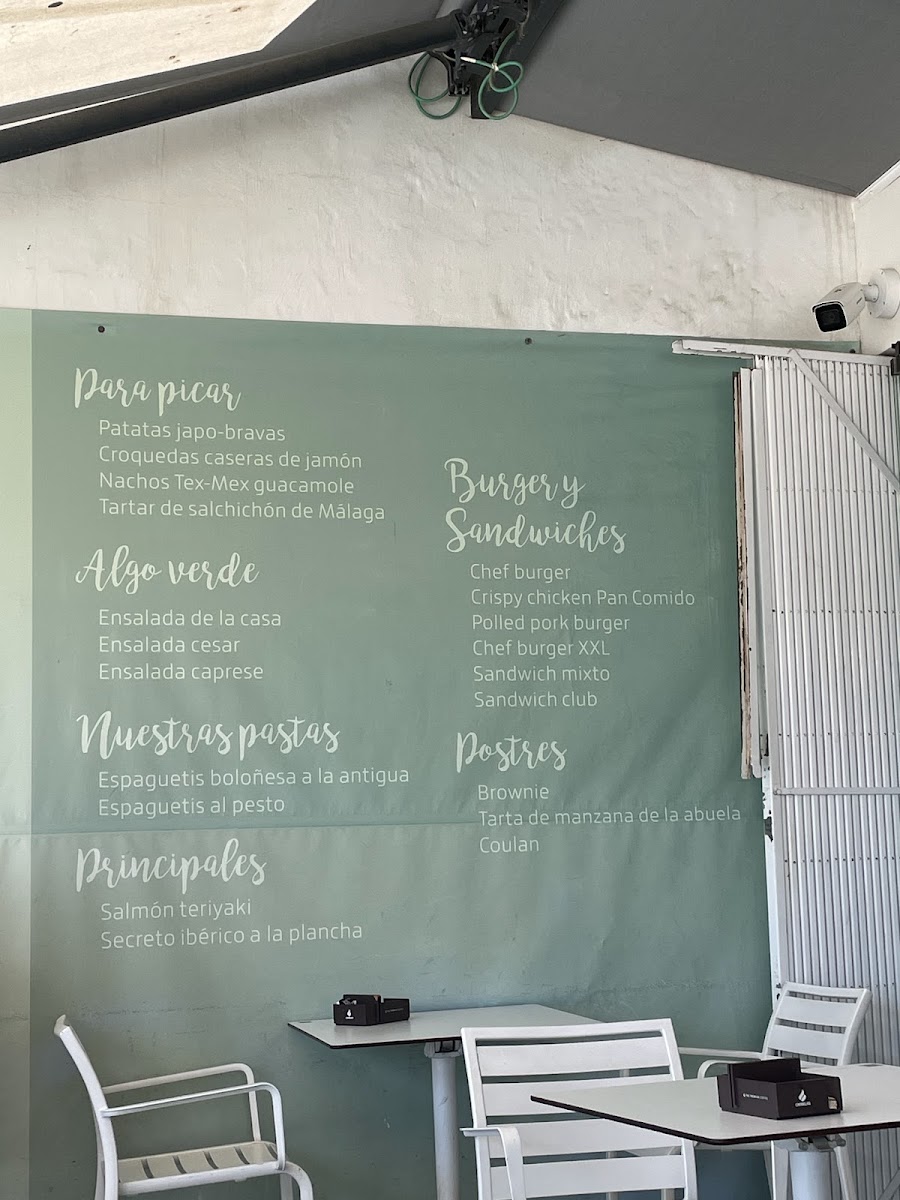 Para picar
Patatas japo-bravas
Croquedas caseras de jamón
Nachos Tex-Mex guacamole
Tartar de salchichón de Málaga
Algo verde
Ensalada de la casa
Ensalada cesar
Ensalada caprese
Nuestras pastas
Espaguetis boloñesa a la antigua
Espaguetis al pesto
Principales
Salmón teriyaki
Secreto ibérico a la plancha
Burger y
Sandwiches
Chef burger
Crispy chicken Pan Comido
Polled pork burger
Chef burger XXL
Sandwich mixto
Sandwich club
Postres
Brownie
Tarta de manzana de la abuela
Coulan